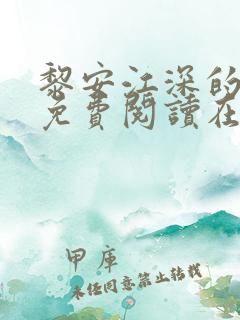 黎安江深的
免費閱讀在
甲庫
未经同意禁止转载